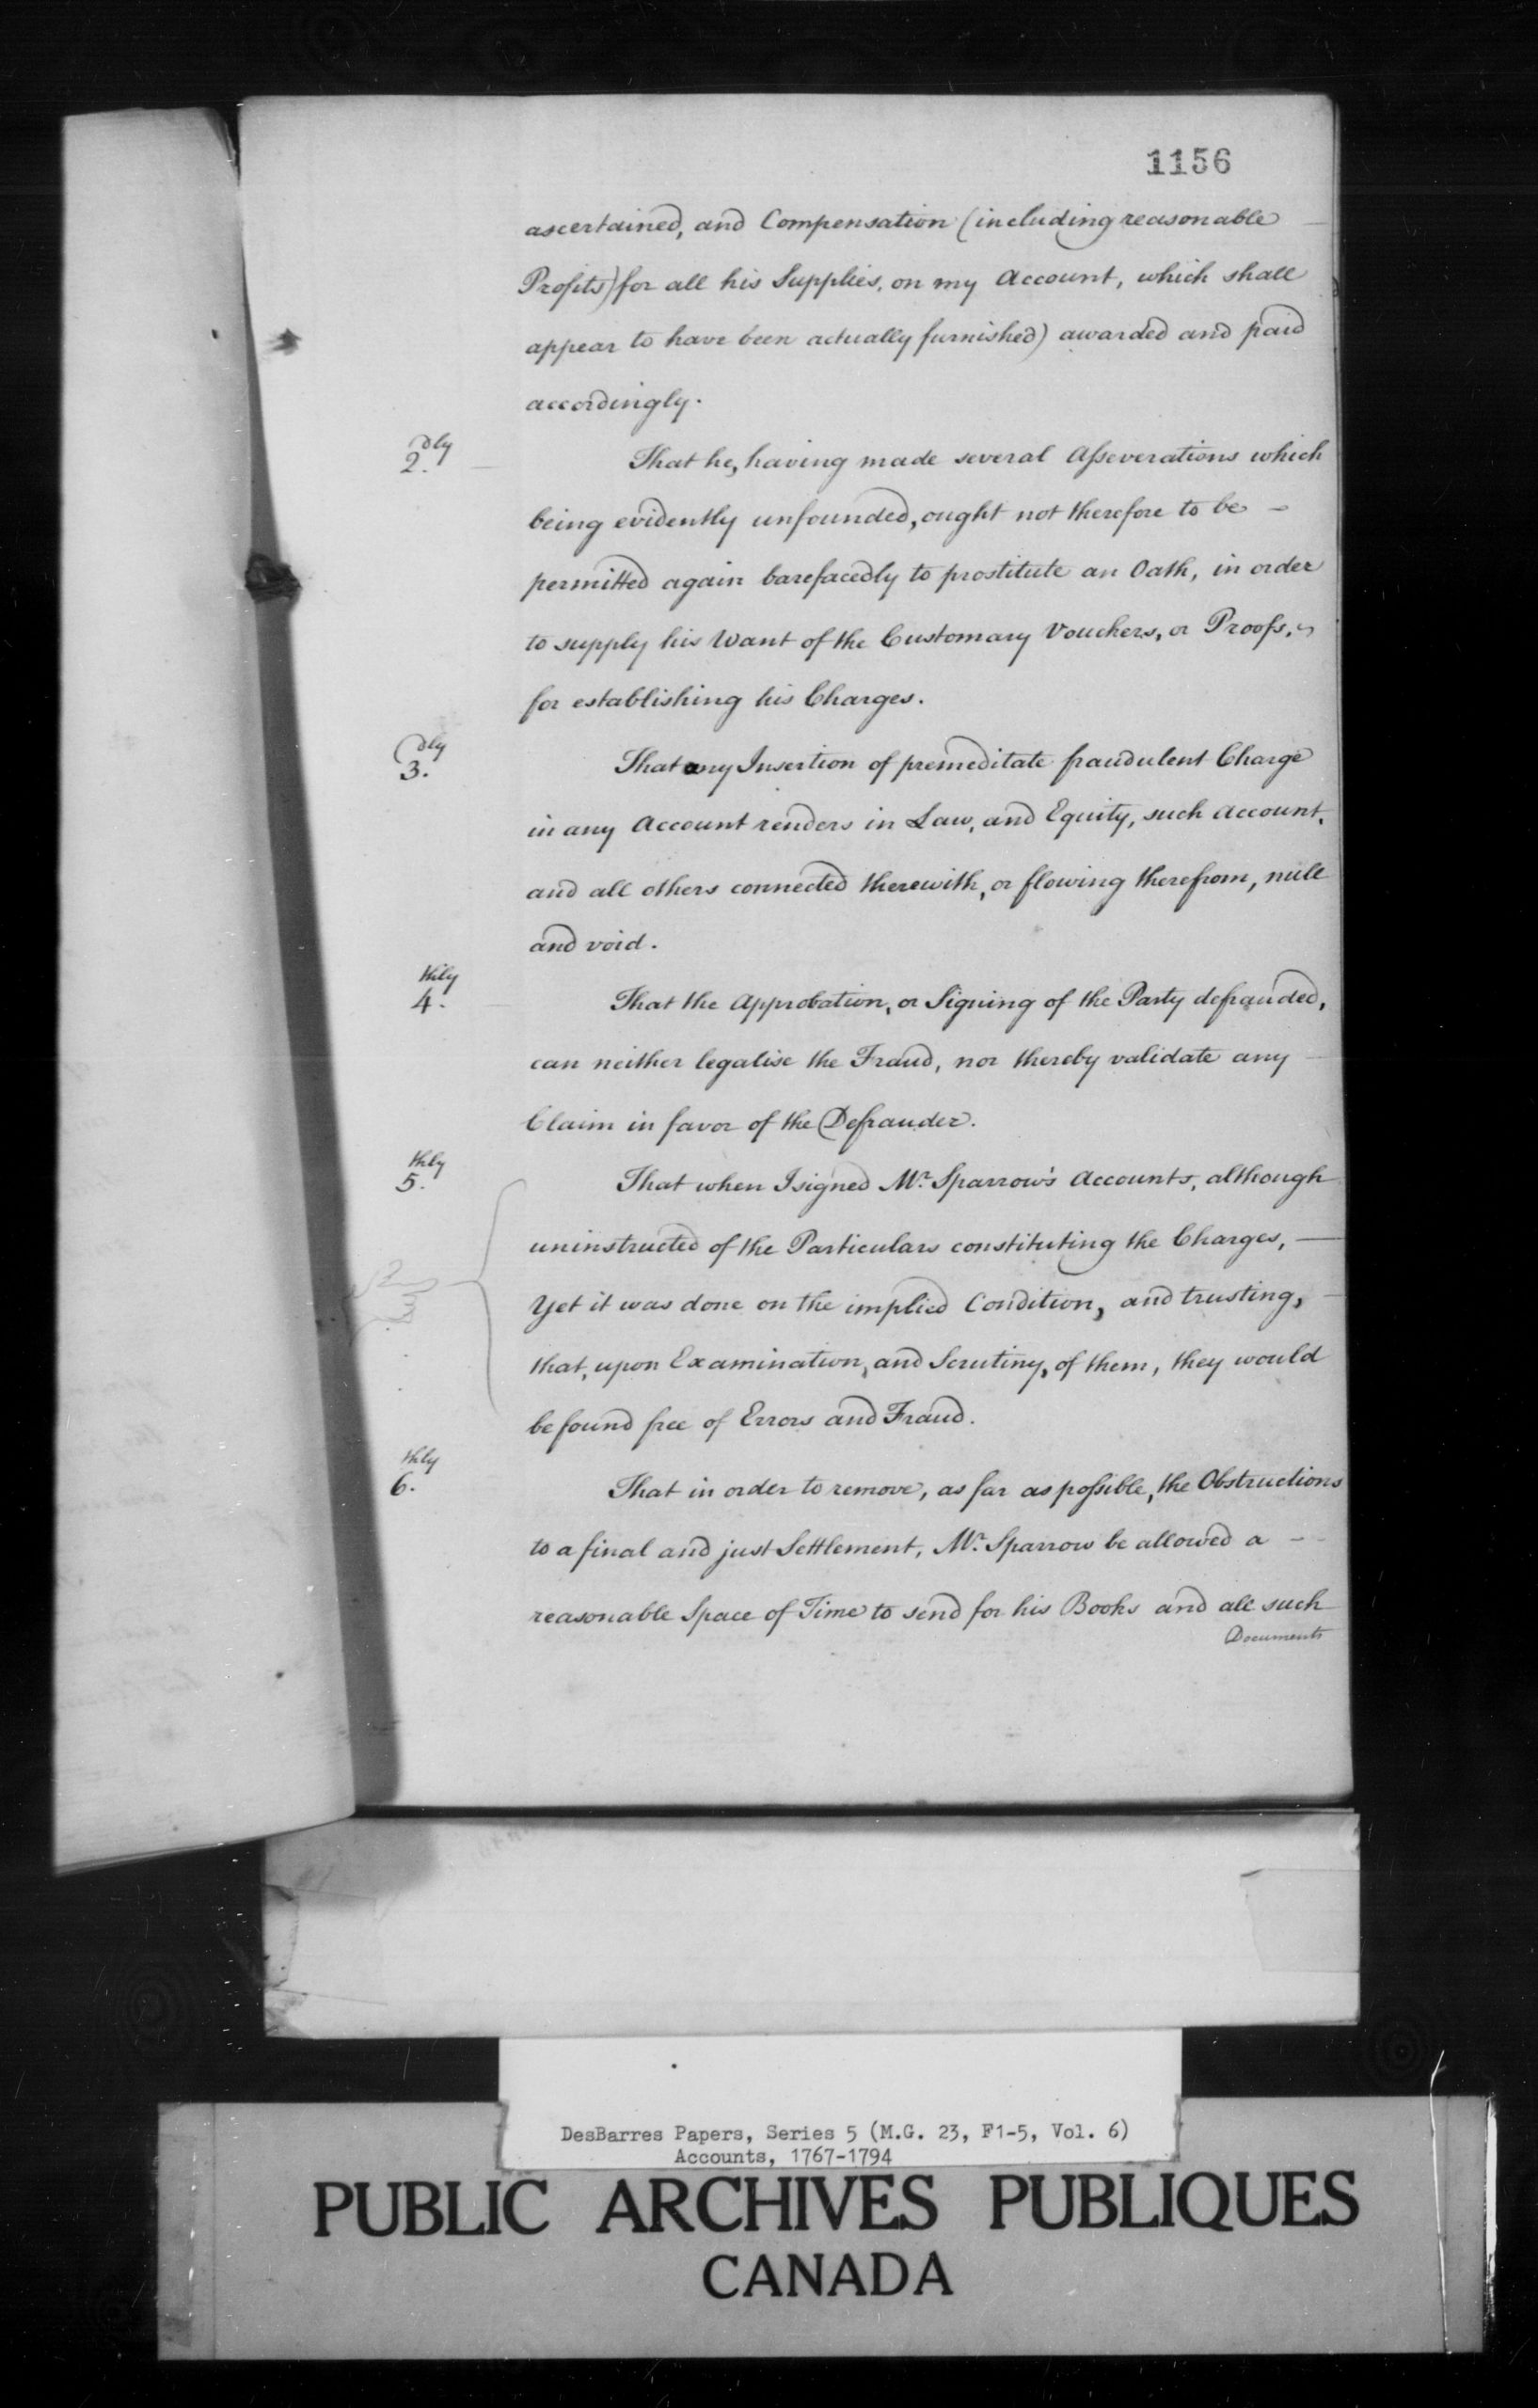 1156
ascertained, and Compensation (including reasonable
Profits) for all his Supplies, on my Account, which shall
appear to have been actually furnished) awarded and paid
accordingly.
2.dly That he, having made several Aſseverations which
being evidently unfounded, ought not therefore to be –
permitted again barefacedly to prostitute an Oath, in order
to supply his Want of the Customary Vouchers, or Proofs,
for establishing his Charges.
3.dly That any Insertion of premeditate fraudulent Charge
in any Account renders in Law, and Equity, such Account,
and all others connected therewith, or flowing therefrom, null
and void.
4.thly That the Approbation, or Signing of the Party defrauded,
can neither legalise the Fraud, nor thereby validate any
Claim in favor of the Defrauder.
5.thly That when I signed Mr. Sparrow's Accounts, although
uninstructed of the Particulars constituting the Charges, —
Yet it was done on the implied Condition, and trusting,
that, upon Examination, and Scrutiny, of them, they would
be found free of Errors and Fraud.
6.thly That in order to remove, as far as poſsible, the Obstructions
to a final and just Settlement, Mr. Sparrow be allowed a –
reasonable Space of Time to send for his Books and all such
Documents
DesBarres Papers, Series 5 (M.G. 23, F1-5, Vol. 6)
Accounts, 1767-1794
PUBLIC ARCHIVES PUBLIQUES
CANADA